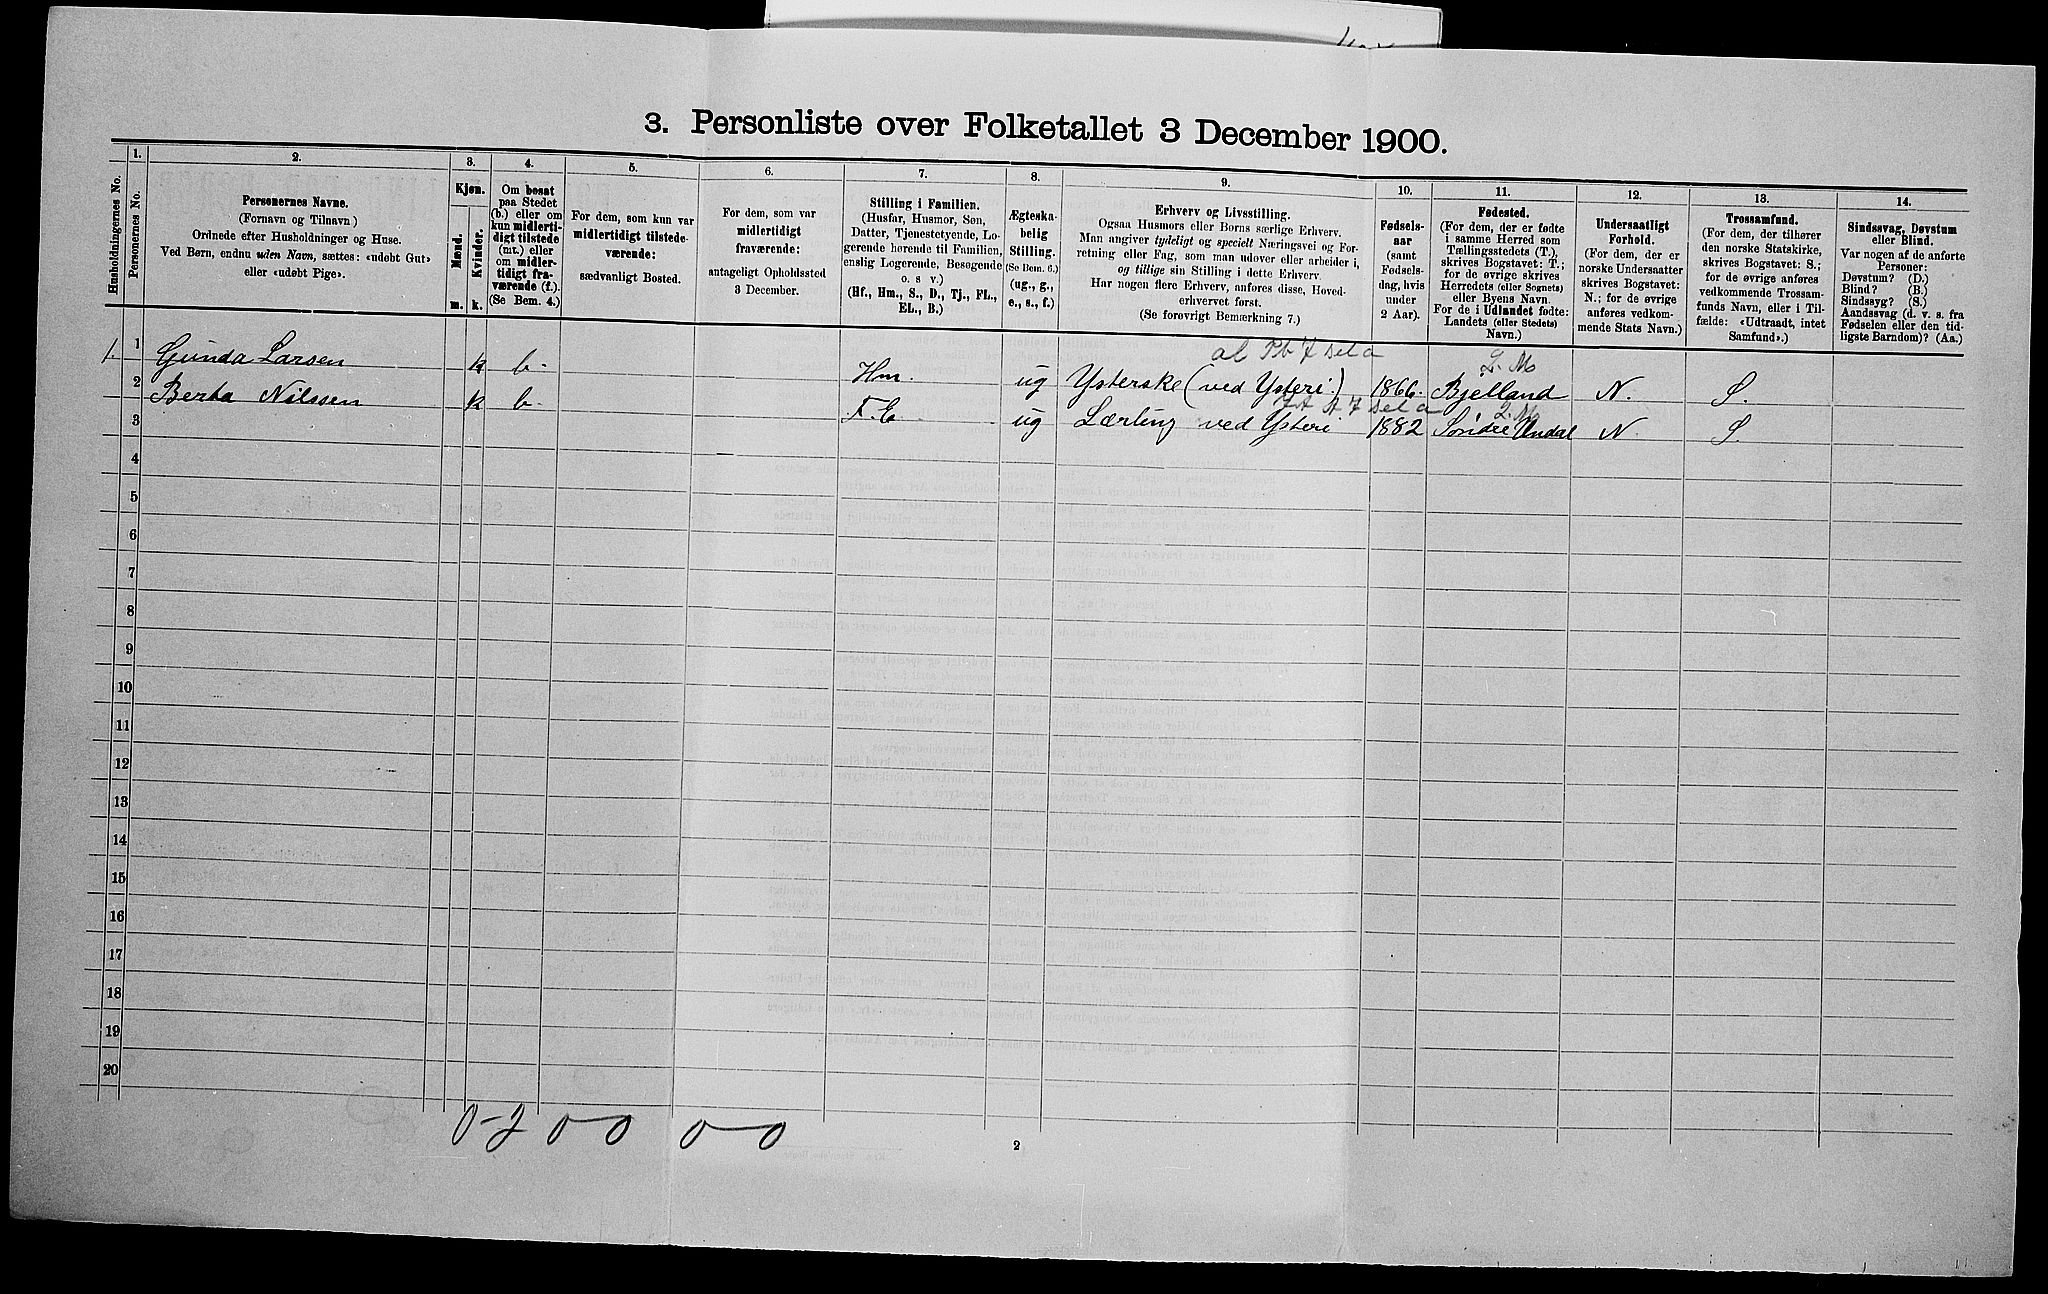 3. Personliste over Folketallet 3 December 1900.
Husholdningernes No.
1.
Personernes No.
2.
Personernes Navne.
(Fornavn og Tilnavn)
Ordnede efter Husholdninger og Huse.
Ved Børn, endnu uden Navn, sættes: «udøbt Gut»
eller «udøbt Pige».
3.
Kjøn.
Mænd.
Kvinder.
m.
k.
4.
Om bosat
paa Stedet
(b.) eller om
kun midlerti-
digt tilstede
(mt.) eller
om midler-
tidigt fra-
værende (f.).
(Se Bem. 4.)
5.
For dem, som kun var
midlertidigt tilstede-
værende:
sædvanligt Bosted.
6.
For dem, som var
midlertidigt
fraværende:
antageligt Opholdssted
3 December.
7.
Stilling i Familien.
(Husfar, Husmor, Søn,
Datter, Tjenestetyende, Lo-
gerende hørende til Familien,
enslig Logerende, Besøgende
o. s v.)
(Hf., Hm., S., D., Tj., FL.,
EL., B.)
8.
Ægteska-
belig
Stilling.
(Se Bem. 6.)
(ug., g.,
e., s., f.)
9.
Erhverv og Livsstilling.
Ogsaa Husmors eller Børns særlige Erhverv.
Man angiver tydeligt og specielt Næringsvei og For-
retning eller Fag, som man udøver eller arbeider i,
og tillige sin Stilling i dette Erhverv.
Har nogen flere Erhverv, anføres disse, Hoved-
erhvervet først.
(Se forøvrigt Bemærkning 7.)
10.
Fødsels-
aar
(samt
Fødsels-
dag, hvis
under
2 Aar).
11.
Fødested.
(For dem, der er fødte
i samme Herred som
Tællingsstedets (T.),
skrives Bogstavet: T.;
for de øvrige skrives
Herredets (eller Sognets)
eller Byens Navn.
For de i Udlandet fødte:
Landets (eller Stedets)
Navn.)
12.
Undersaatligt
Forhold.
(For dem, der er
norske Undersaatter
skrives Bogstavet:
N.; for de øvrige
anføres vedkom-
mende Stats Navn.)
13.
Trossamfund.
(For dem, der tilhører
den norske Statskirke,
skrives Bogstavet: S.;
for de øvrige anføres
vedkommende Trossam-
funds Navn, eller i Til-
fælde: «Udtraadt, intet
Samfund».)
14.
Sindssvag, Døvstum
eller Blind.
Var nogen af de anførte
Personer:
Døvstum? (D.)
Blind? (B.)
Sindssyg? (S.)
Aandssvag (d. v. s. fra
Fødselen eller den tid-
ligste Barndom)? (Aa.)
1. 1 Gunda Larsen k b. Hm. ug Ysterske (ved Ysteri.) 1866. Bjelland N. S.
2 Berta Nilssen k b. F.E ug Lærling ved Ysteri 1882 Søndre Undal N. S.
3
4
5
6
7
8
9
10
11
12
13
14
15
16
17
18
19
20
0-2 0 0 0 0
2